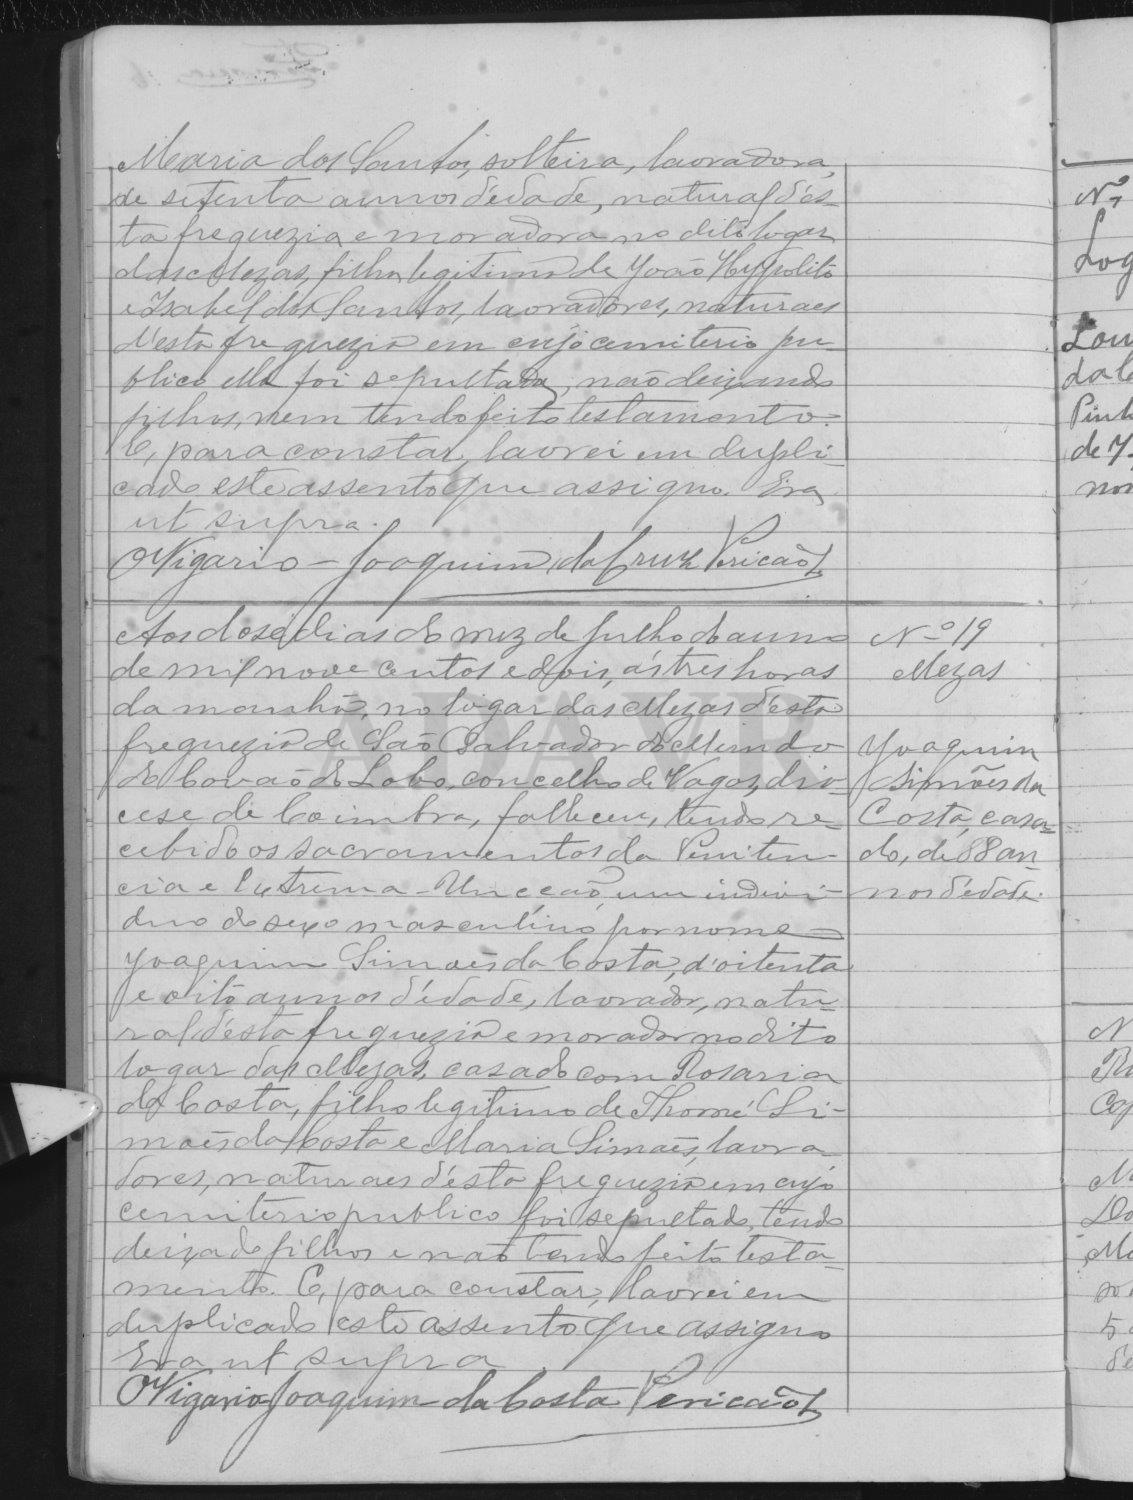 Maria dos Santos, solteira, lavradora,
de setenta annos d'edade, natural d'es-
ta freguezia e moradora no dito logar
das Mezas, filha legitima de João Hyppolito
e Izabel dos Santos, lavradores, naturaes
d'esta freguezia em cujo cemiterio pu-
blico ella foi sepultada, não deixando
filhos, nem tendo feito testamento.
E, para constar, lavrei em dupli-
cado este assento que assigno. Era
ut supra.
O Vigario - Joaquim da Cruz Pericão
Aos dose dias do mez de Julho do anno
de mil nove centos e dois, ás tres horas
da manhã, no logar das Mezas d'esta
freguezia de São Salvador do Mundo
de Covão do Lobo, concelho de Vagos, dio-
cese de Coimbra, falleceu, tendo re-
cebido os sacramentos da Peniten-
cia e Extrema-Uncção, um indivi-
duo do sexo masculino por nome
Joaquim Simões da Costa, d'oitenta
e oito annos d'edade, lavrador, natu-
ral d'esta freguezia e morador no dito
logar das Mezas, casado com Rosaria
da Costa, filho legitimo de Thomé Si-
mões da Costa e Maria Simões, lavra-
dores, naturaes d'esta freguezia em cujo
cemiterio publico foi sepultado, tendo
deixado filhos e não tendo feito testa-
mento. E, para constar, lavrei em
duplicado este assento que assigno
Era ut supra
O Vigario Joaquim da Costa Pericão
Nº 19
Mezas
Joaquim
Simões da
Costa, casa-
do, de 88 an-
nos d'edade.
ADAVR
Nº
Log
Lou
da C
Pinh
de 7
nos
N